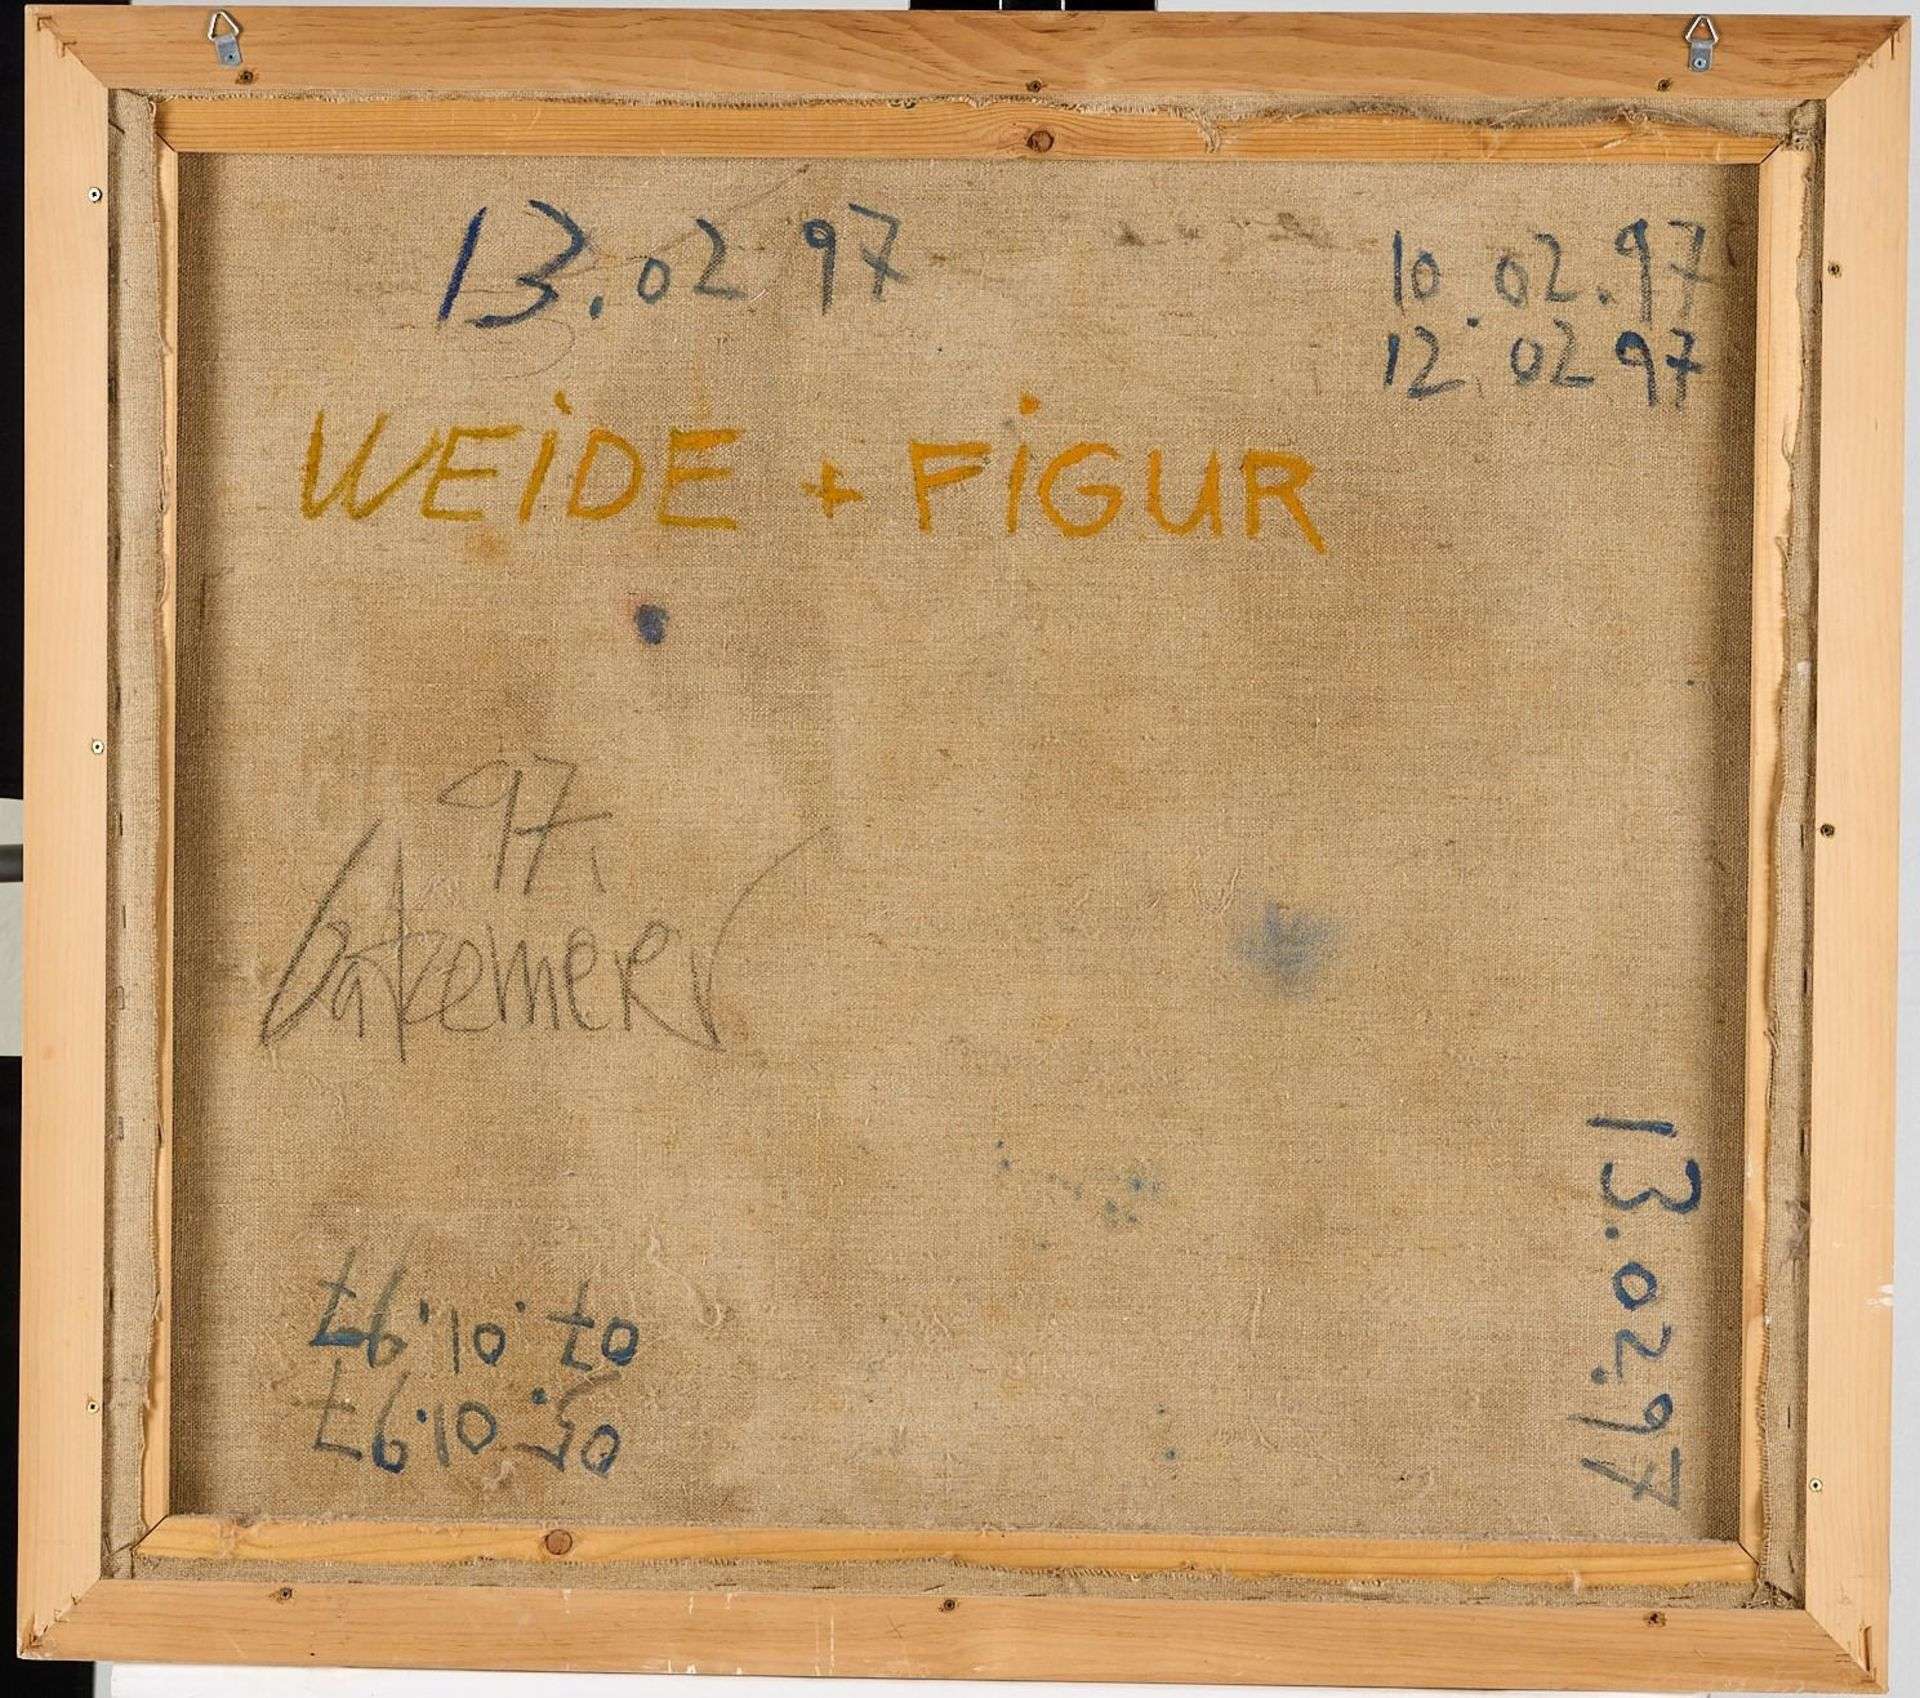 13.02 97
10.02.97
12.02 97
WEiDE + FiGUR
97.
13.02.97
07.01.97
05.01.97